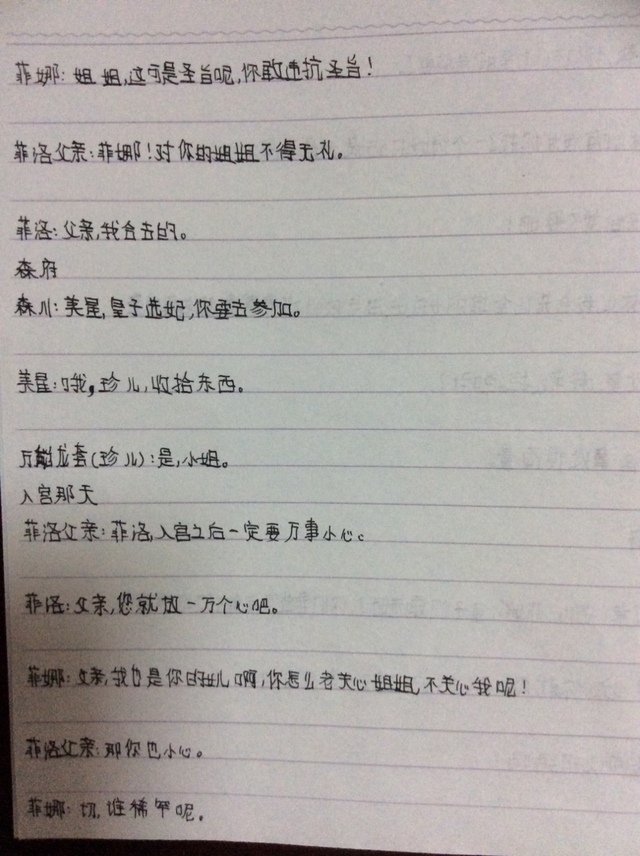 菲娜：姐姐，这可是圣旨呢，你敢违抗圣旨！
菲洛父亲：菲娜！对你的姐姐不得无礼。
菲洛：父亲，我会去的。
森府
森川：美星，皇子选妃，你要去参加。
美星：哦，珍儿，收拾东西。
万能龙套（珍儿）：是，小姐。
入宫那天
菲洛父亲：菲洛，入宫之后一定要万事小心。
菲洛：父亲，您就放一万个心吧。
菲娜：父亲，我也是你的女儿啊，你怎么老关心姐姐，不关心我呢！
菲洛父亲：那你也小心。
菲娜：切，谁稀罕呢。